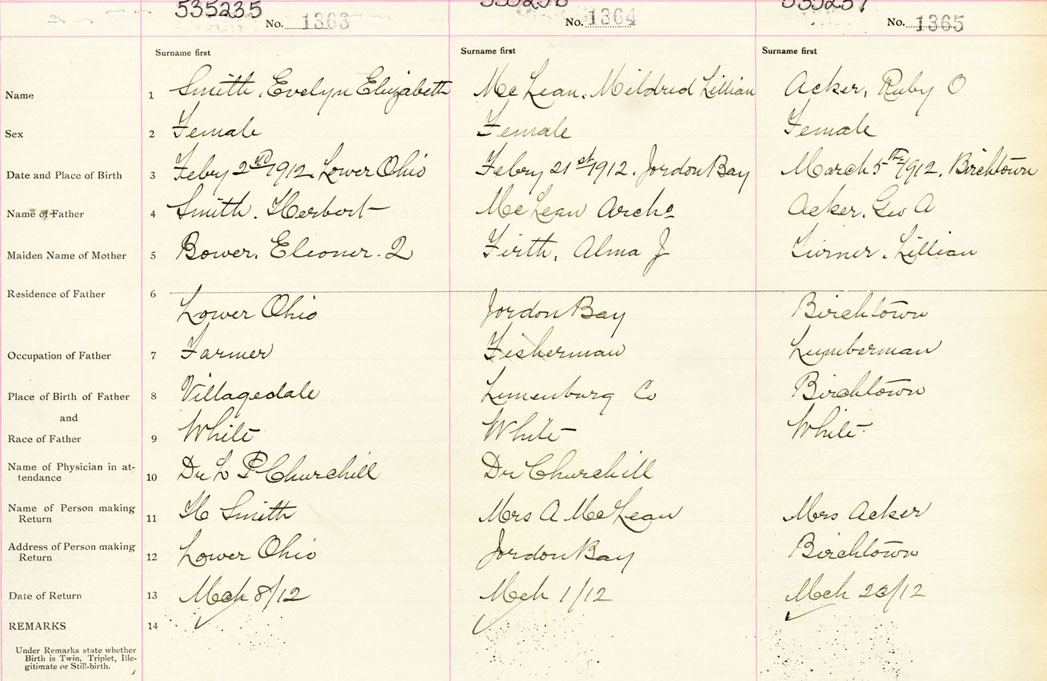 535235 No. 1363 No. 1364 No. 1365
Surname first Surname first Surname first
Name 1 Smith, Evelyn Elizabeth McLean, Mildred Lillian Acker, Ruby O
Sex 2 Female Female Female
Date and Place of Birth 3 Feby 2nd 1912, Lower Ohio Febry 21st 1912, Jordon Bay March 5th 1912, Birchtown
Name of Father 4 Smith, Herbert McLean Archd Acker, Geo A
Maiden Name of Mother 5 Bower, Eleoner. Firth, Alma J Turner, Lillian
Residence of Father 6
Lower Ohio Jordon Bay Birchtown
Occupation of Father 7 Farmer Fisherman Lumberman
Place of Birth of Father 8 Villagedale Lunenburg Co Birchtown
and
Race of Father 9 White White White
Name of Physician in at-
tendance 10 Dr L P Churchill Dr Churchill
Name of Person making
Return 11 H Smith Mrs A McLean Mrs Acker
Address of Person making
Return 12 Lower Ohio Jordon Bay Birchtown
Date of Return 13 Mch 8/12 Mch 1/12 Mch 23/12
REMARKS 14
Under Remarks state whether
Birth is Twin, Triplet, Ille-
gitimate or Still-birth.